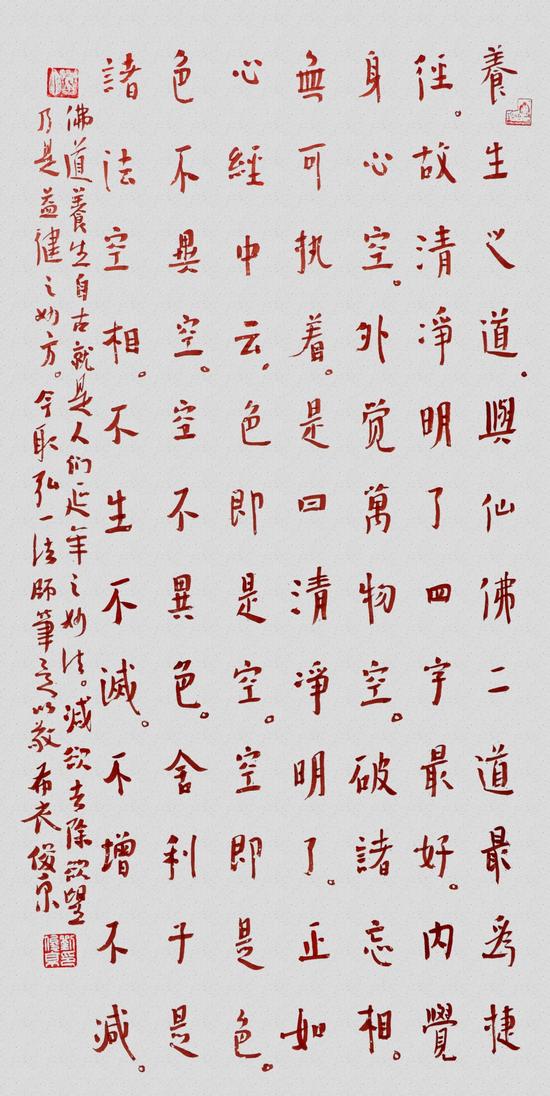 養生之道。與仙佛二道最為捷
徑。故清淨明了四字最好。內覺
身心空。外觉萬物空。破諸忘相。
無可执着。是曰清淨明了。正如
心經中云。色即是空。空即是色。
色不異空。空不異色。舍利子是
諸法空相。不生不滅。不增不減。
佛道養生自古就是人们延年之妙法。減欲去除欲望
乃是益健之妙方。今取弘一法師筆意以敬希衣俊京